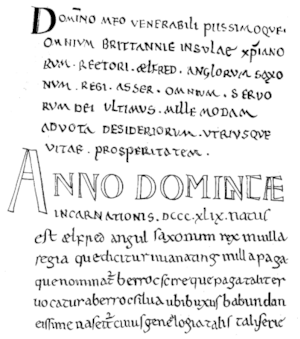 DOMINO MEO VENERABILI PIISSIMOQUE·
OMNIUM BRITTANNIE INSULAE XPIANO
RUM· RECTORI· ÆLFRED· ANGLORUM SAXO
NUM· REGI· ASSER· OMNIUM· SERVO
RUM DEI ULTIMUS· MILLE MODAM
ADVOTA DESIDERIORUM· UTRIUSQUE
VITAE· PROSPERITATEM·
ANNO DOMINICÆ
INCARNATIONIS· DCCC·XLIX· natus
est ælfred angul saxonum rex in uilla
regia que dicitur uuanating in illa paga
que nominatur berrocscire que paga taliter
uocatur a berroc silua ubi buxus habundan
tissime nascitur cuius genelogia talis tali serie